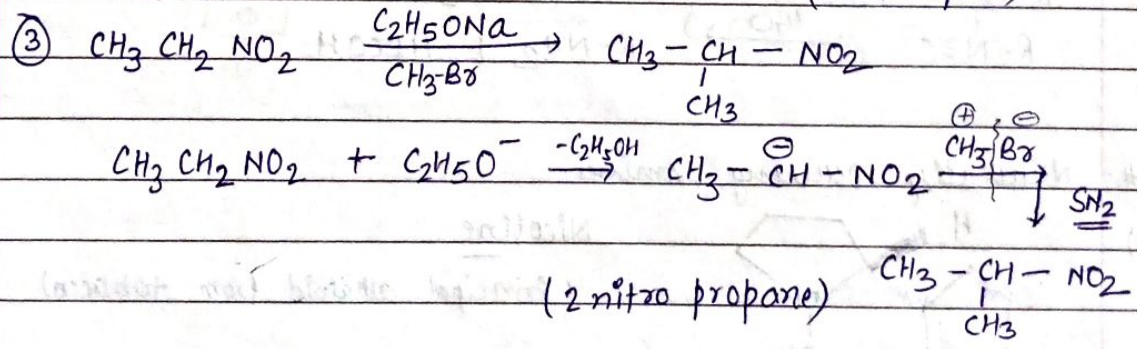 ③ CH3 CH2 NO2 C2H5ONa / CH3-Br → CH3 - CH - NO2
CH3
CH3 CH2 NO2 + C2H5O⁻ -C2H5OH → CH3 - CH⊖ - NO2 CH3⊕ Br⊖ → SN2
(2 nitro propane) CH3 - CH - NO2
CH3